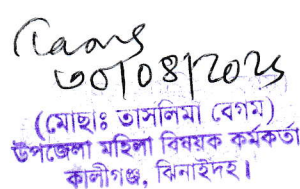 ৩০/০৪/২০২৫
(মোছাঃ তাসলিমা বেগম)
উপজেলা মহিলা বিষয়ক কর্মকর্তা
কালীগঞ্জ, ঝিনাইদহ।